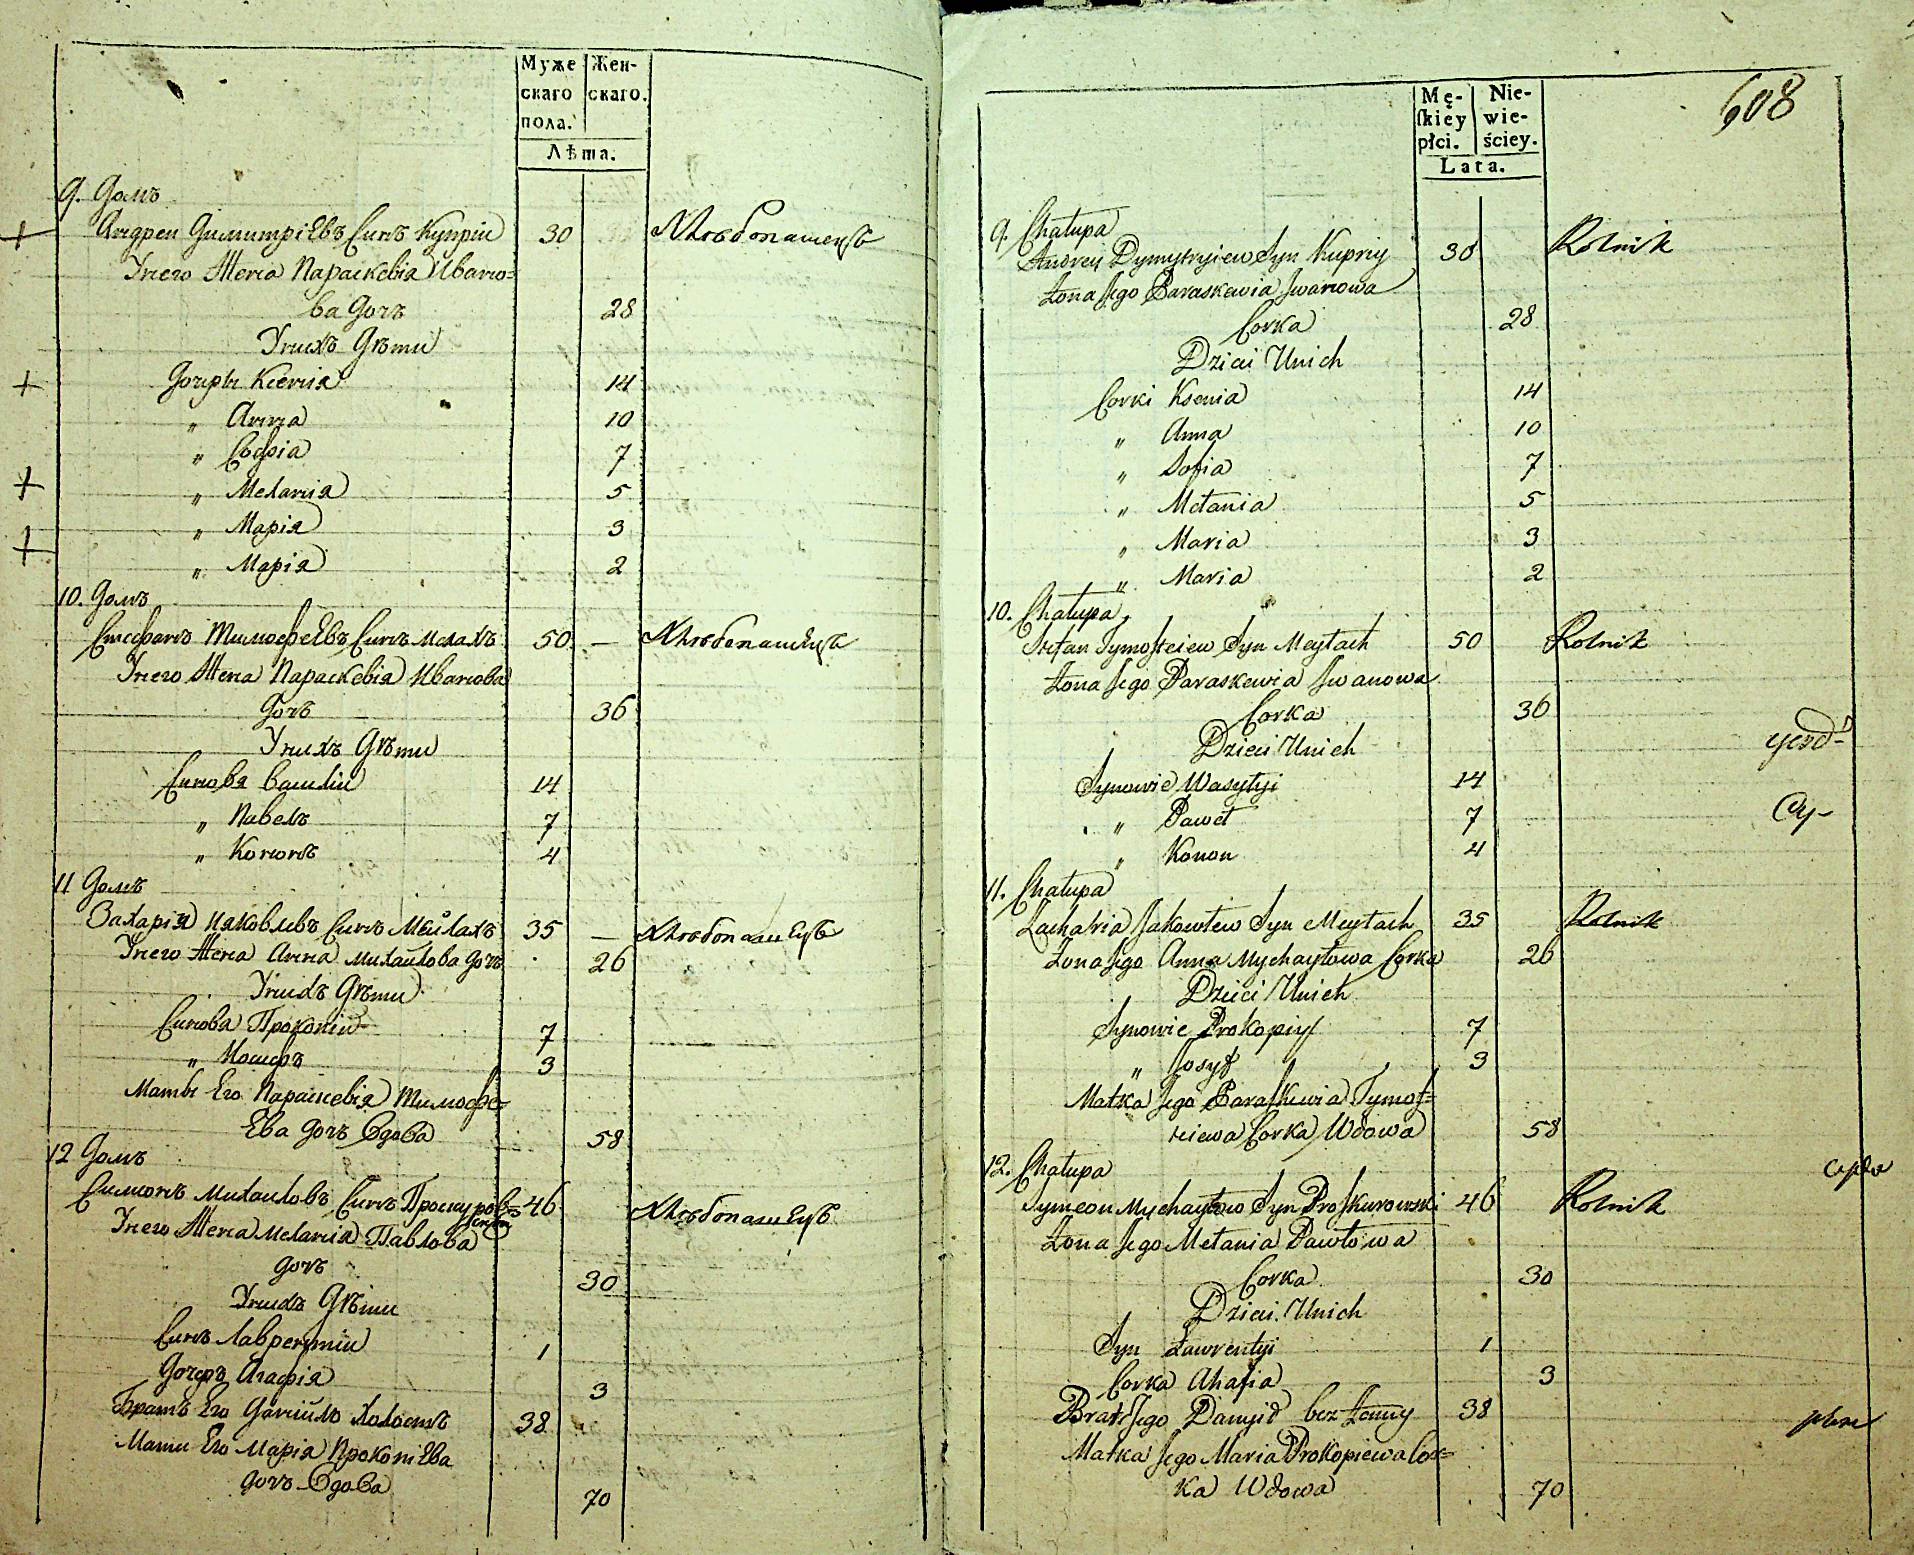 Муже Жен-
скаго скаго.
пола.
Лѣта.
9. Домъ
Андреи Димитріевъ Синъ Купріи 30 Хлѣбопашецъ
Унего Жена Параскевіа Ивано-
ва дочъ 28
Унихъ Дѣти
Дочеры Ксенія 14
„ Анна 10
„ Софіа 7
„ Меланія 5
„ Марія 3
„ Марія 2
10. Домъ
Стефанъ Тимофеевъ Синъ 50 — Хлѣбопашецъ
Унего Жена Параскевіа Иванова
дочъ 36
Унихъ Дѣти
Синовя Василіи 14
„ Павелъ 7
„ Кононъ 4
11 Домъ
Захарій Іяковлевъ Синъ Мейлахъ 35 — Хлѣбопашецъ
Унего Жена Анна Михайлова дочъ 26
Унихъ Дѣти
Синова Прокопіи 7
„ Иосифъ 3
Маты Его Параскевія Тимофе-
Ева дочъ Вдова 58
12 Домъ
Симионъ Михаиловъ Синъ Проскуров- 46 Хлѣбопашецъ
Унего Жена Меланіа Павлова
дочъ 30
Унихъ Дѣти
Синъ Лаврентіи 1
Дочеръ Агафія 3
Братъ Его Даніилъ Холостъ 38
Мати Его Марія Прокопіева
дочъ Вдова 70
608
Mę- Nie-
ſkiey wie-
płci. ściey.
Lata.
9. Chałupa
Andrey Dymytryiew Syn Kupriy 30 Rolnik
Żona Jego Paraskewia Iwanowa
Corka 28
Dzieci Unich
Corki Ksenia 14
„ Anna 10
„ Sofia 7
„ Mełania 5
„ Maria 3
„ Maria 2
10. Chałupa
Stefan Tymofteiew Syn Meyłach 50 Rolnik
Żona Jego Paraskewia Iwanowa
Corka 36
Dzieci Unich
Synowie Wasylyi 14
„ Paweł 7
„ Konon 4
11. Chałupa
Zacharia Jakowlew Syn Meyłach 35 Rolnik
Żona Jego Anna Mychayłowa Corka 26
Dzieci Unich
Synowie Prokopiy 7
„ Josyf 3
Matka Jego Paraſkewia Tymof=
teiewa Corka Wdowa 58
12. Chałupa
Symeon Mychayłow Syn Proſkurowski 46 Rolnik
Żona Jego Mełania Pawłowa
Corka 30
Dzieci Unich
Syn Ławrentyi 1
Corka Ahafia 3
Brat Jego Danyił bez Żenny 38
Matka Jego Maria Prokopiewa Cor=
ka Wdowa 70